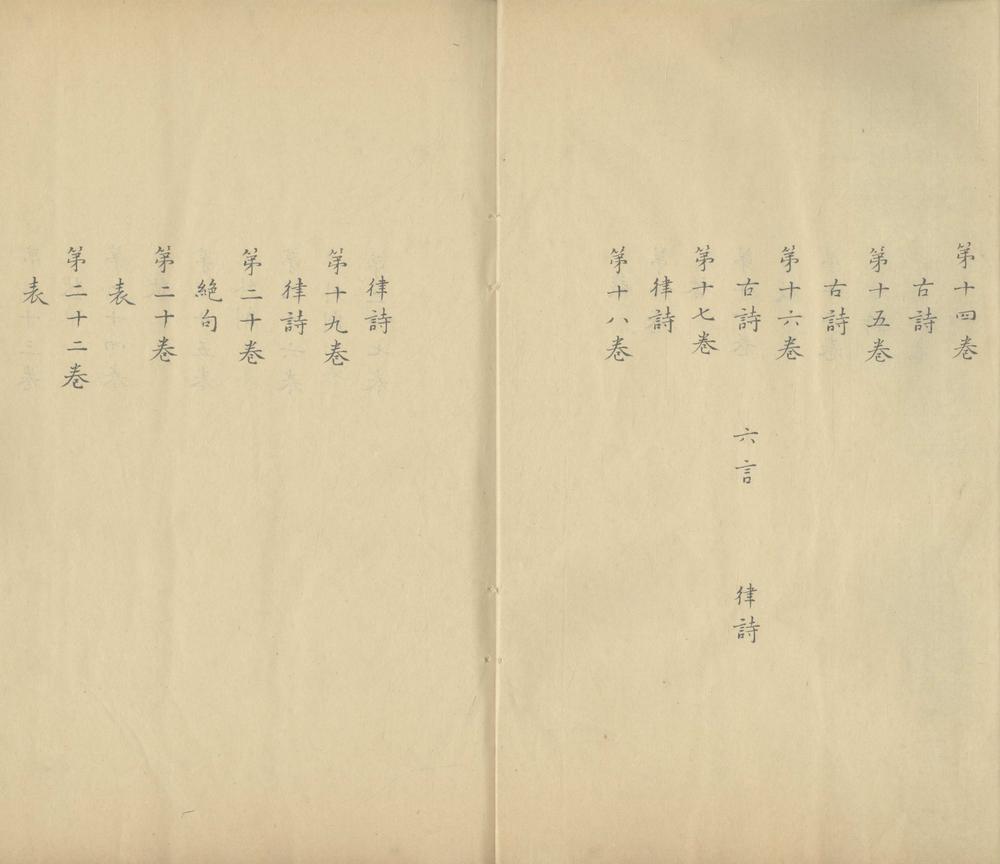 第十四卷
古詩
第十五卷
古詩
第十六卷
古詩 六言 律詩
第十七卷
律詩
第十八卷
律詩
第十九卷
律詩
第二十卷
絕句
第二十卷
表
第二十二卷
表